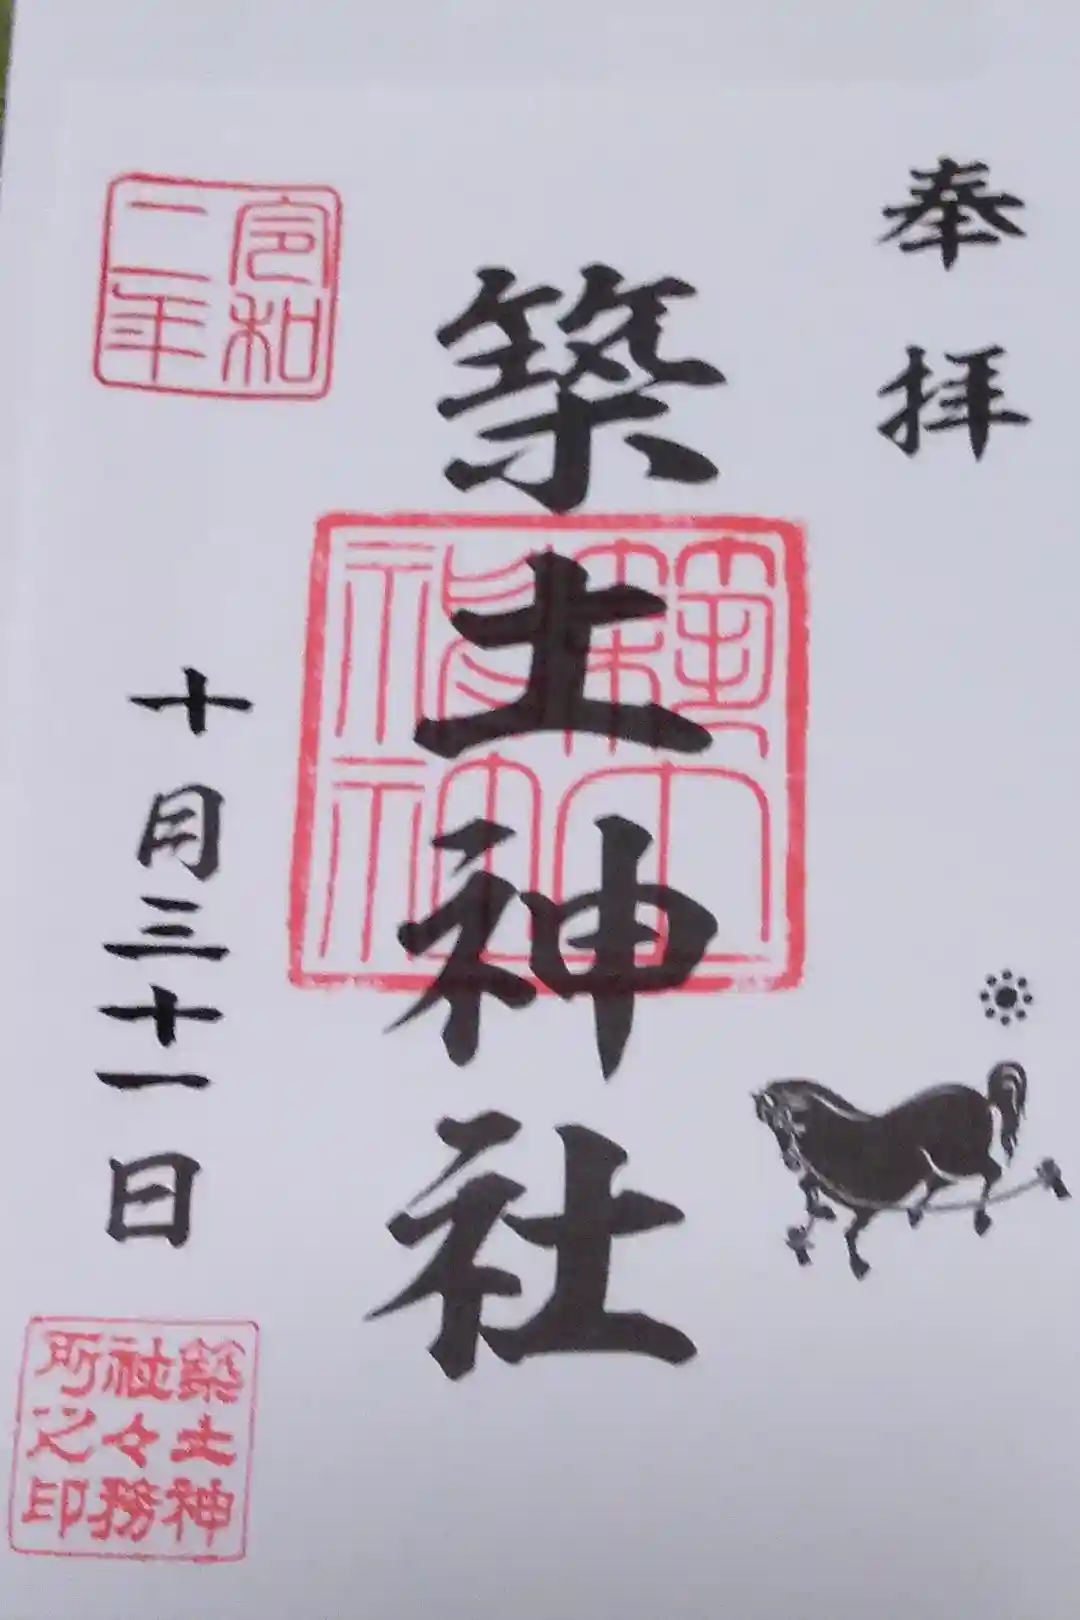 奉拝
築土神社
令和
二年
十月三十一日
築土神
社々務
所之印